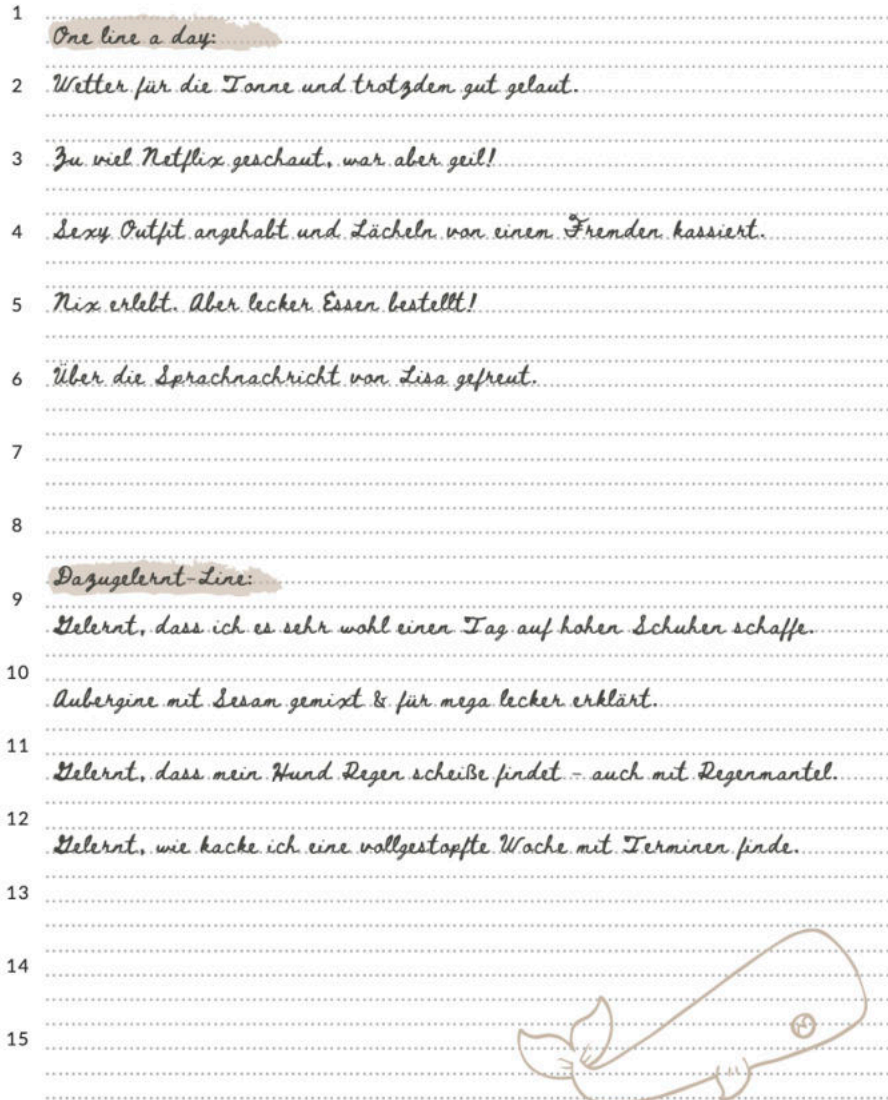 1
One line a day:
2 Wetter für die Tonne und trotzdem gut gelaut.
3 Zu viel Netflix geschaut, war aber geil!
4 Sexy Outfit angehabt und Lächeln von einem Fremden kassiert.
5 Nix erlebt. Aber lecker Essen bestellt!
6 Über die Sprachnachricht von Lisa gefreut.
7
8
Dazugelernt-Line:
9
Gelernt, dass ich es sehr wohl einen Tag auf hohen Schuhen schaffe.
10
Aubergine mit Sesam gemixt & für mega lecker erklärt.
11
Gelernt, dass mein Hund Regen scheiße findet - auch mit Regenmantel.
12
Gelernt, wie kacke ich eine vollgestopfte Woche mit Terminen finde.
13
14
15